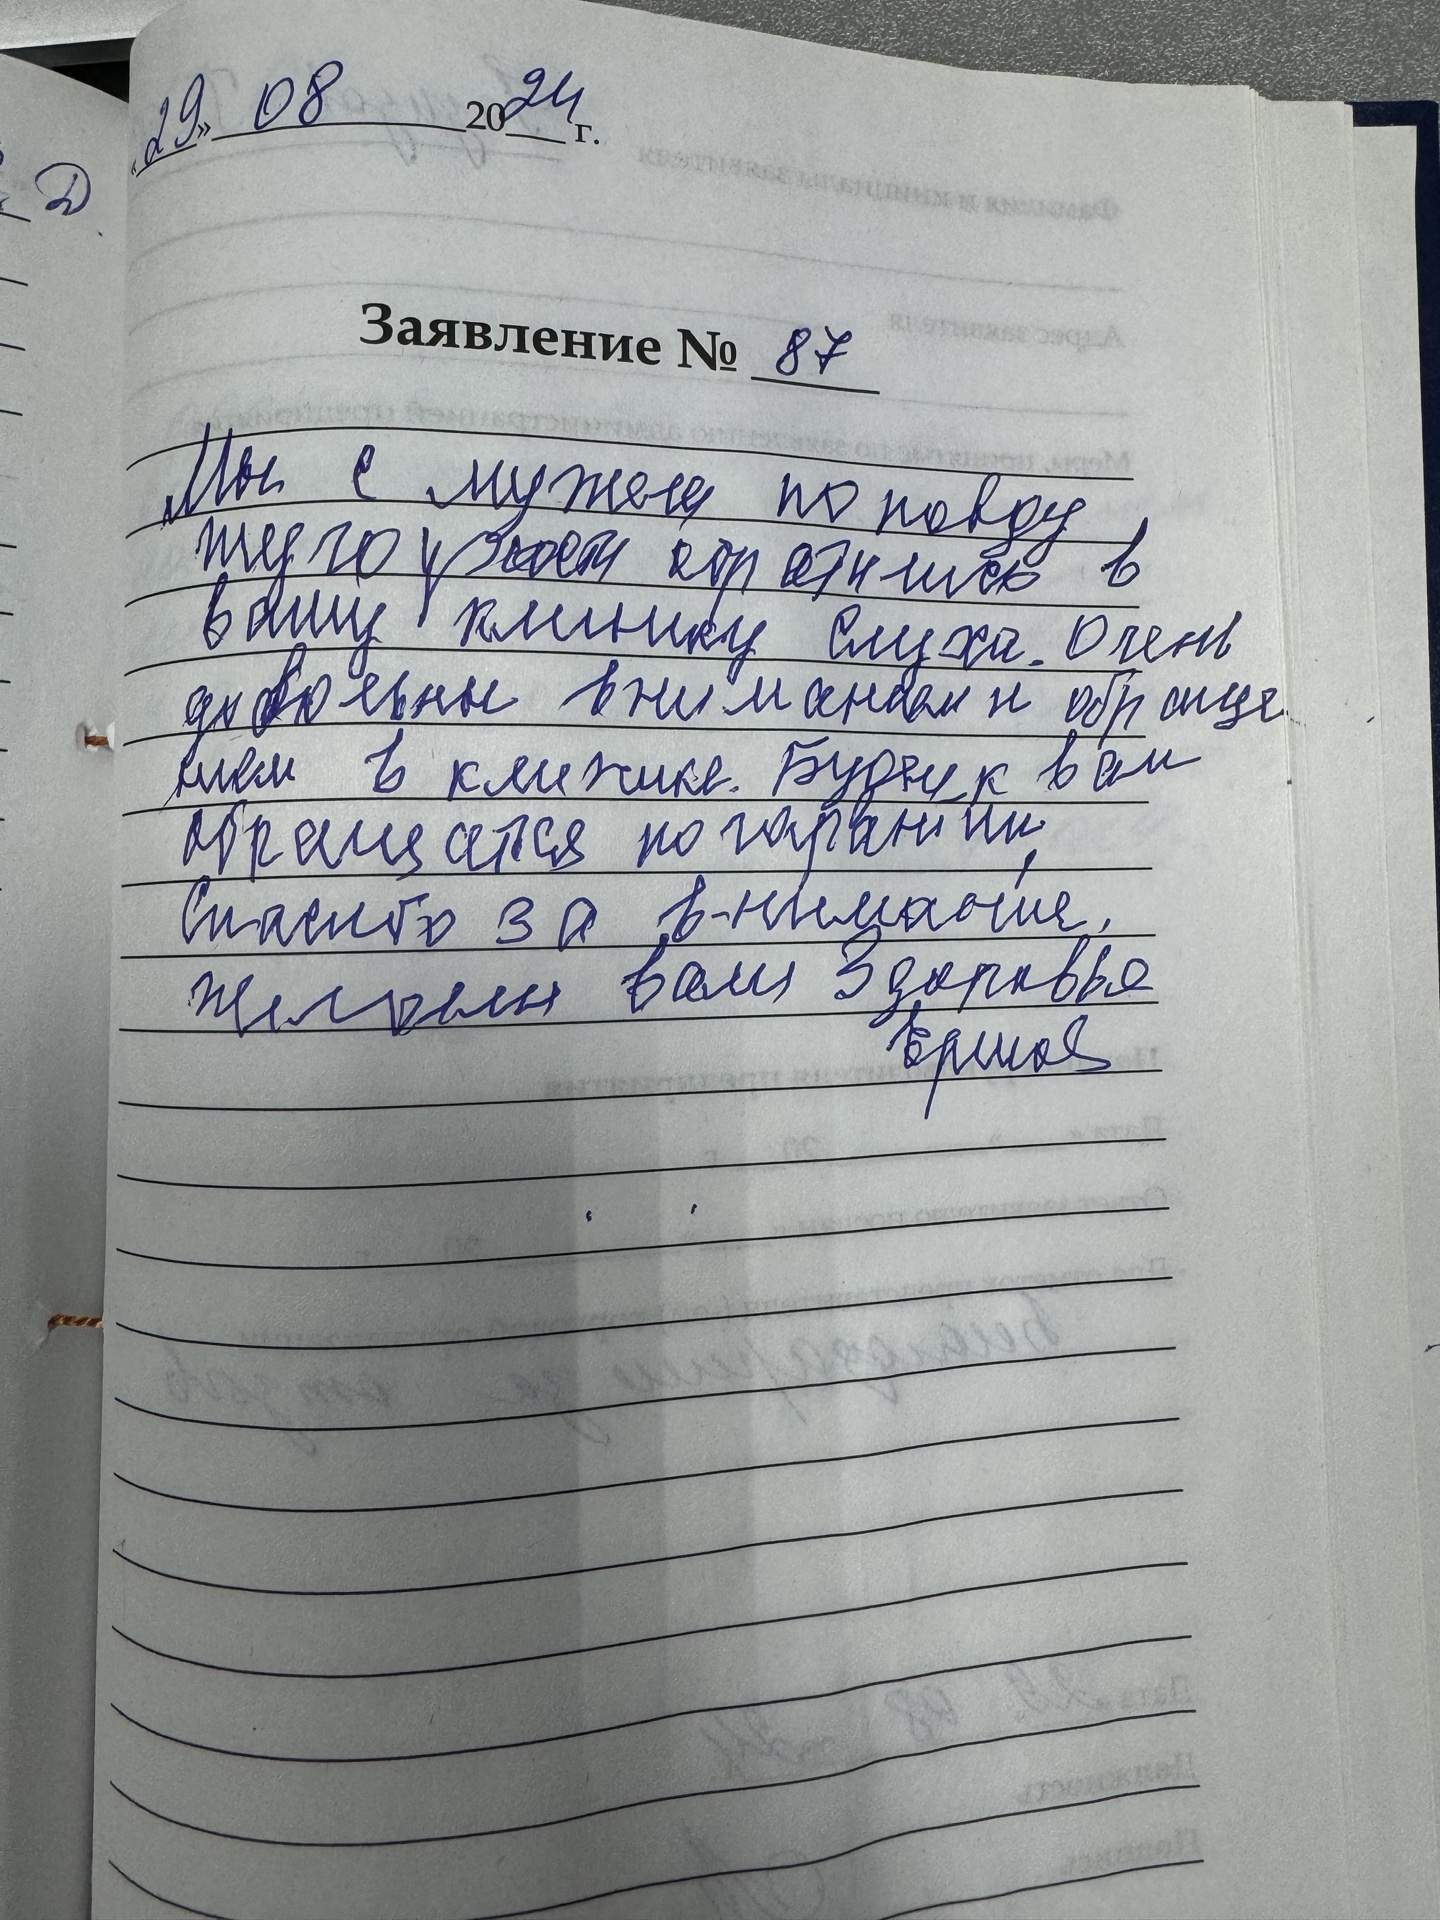 «29» 08 2024 г.
Д
Заявление № 87
Мы с мужем по поводу
обратились в
вашу клинику слуха. Очень
довольны вниманием и обраще
нием в клинике. Будем к вам
обращатся по гарантии
Спасибо за внимание,
желаем вам Здоровья
Ершов